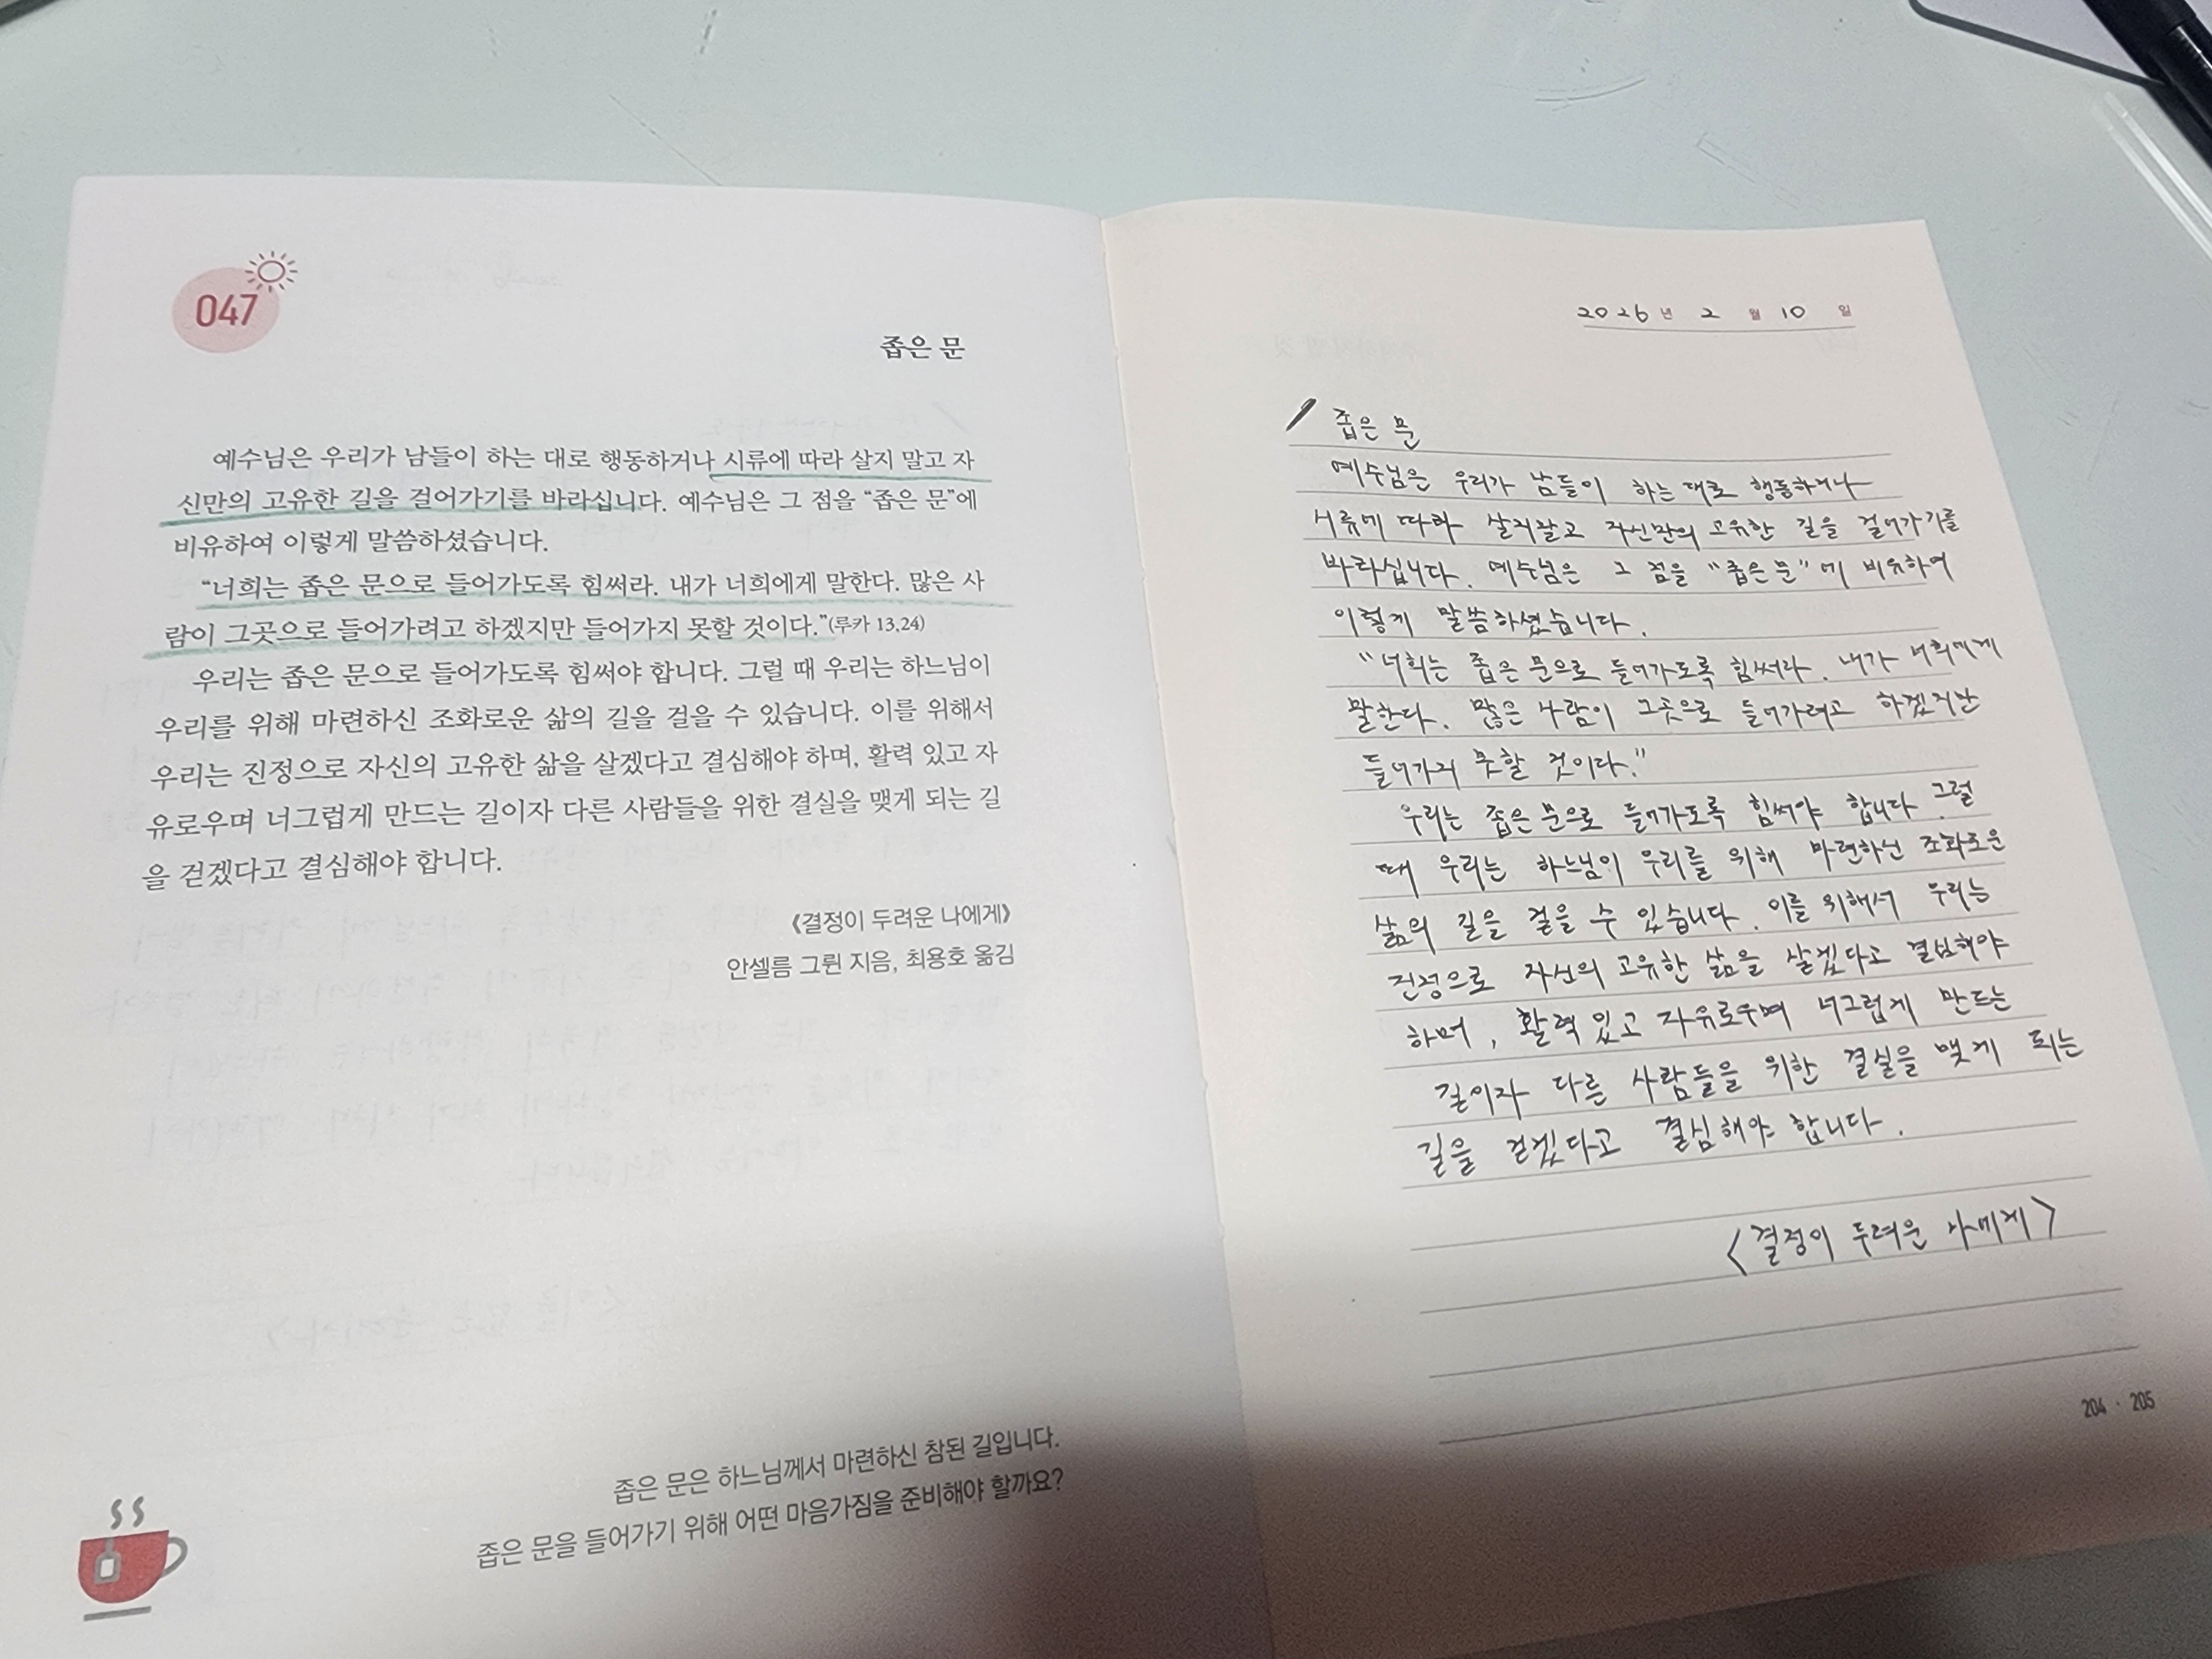 047
좁은 문
예수님은 우리가 남들이 하는 대로 행동하거나 시류에 따라 살지 말고 자
신만의 고유한 길을 걸어가기를 바라십니다. 예수님은 그 점을 “좁은 문”에
비유하여 이렇게 말씀하셨습니다.
“너희는 좁은 문으로 들어가도록 힘써라. 내가 너희에게 말한다. 많은 사
람이 그곳으로 들어가려고 하겠지만 들어가지 못할 것이다.”(루카 13,24)
우리는 좁은 문으로 들어가도록 힘써야 합니다. 그럴 때 우리는 하느님이
우리를 위해 마련하신 조화로운 삶의 길을 걸을 수 있습니다. 이를 위해서
우리는 진정으로 자신의 고유한 삶을 살겠다고 결심해야 하며, 활력 있고 자
유로우며 너그럽게 만드는 길이자 다른 사람들을 위한 결실을 맺게 되는 길
을 걷겠다고 결심해야 합니다.
《결정이 두려운 나에게》
안셀름 그륀 지음, 최용호 옮김
좁은 문은 하느님께서 마련하신 참된 길입니다.
좁은 문을 들어가기 위해 어떤 마음가짐을 준비해야 할까요?
2026년 2월 10일
좁은 문
예수님은 우리가 남들이 하는 대로 행동하거나
시류에 따라 살지말고 자신만의 고유한 길을 걸어가기를
바라십니다. 예수님은 그 점을 “좁은 문”에 비유하여
이렇게 말씀하셨습니다.
“너희는 좁은 문으로 들어가도록 힘써라. 내가 너희에게
말한다. 많은 사람이 그곳으로 들어가려고 하겠지만
들어가지 못할 것이다.”
우리는 좁은 문으로 들어가도록 힘써야 합니다. 그럴
때 우리는 하느님이 우리를 위해 마련하신 조화로운
삶의 길을 걸을 수 있습니다. 이를 위해서 우리는
진정으로 자신의 고유한 삶을 살겠다고 결심해야
하며, 활력 있고 자유로우며 너그럽게 만드는
길이자 다른 사람들을 위한 결실을 맺게 되는
길을 걷겠다고 결심해야 합니다.
<결정이 두려운 나에게>
204 · 205